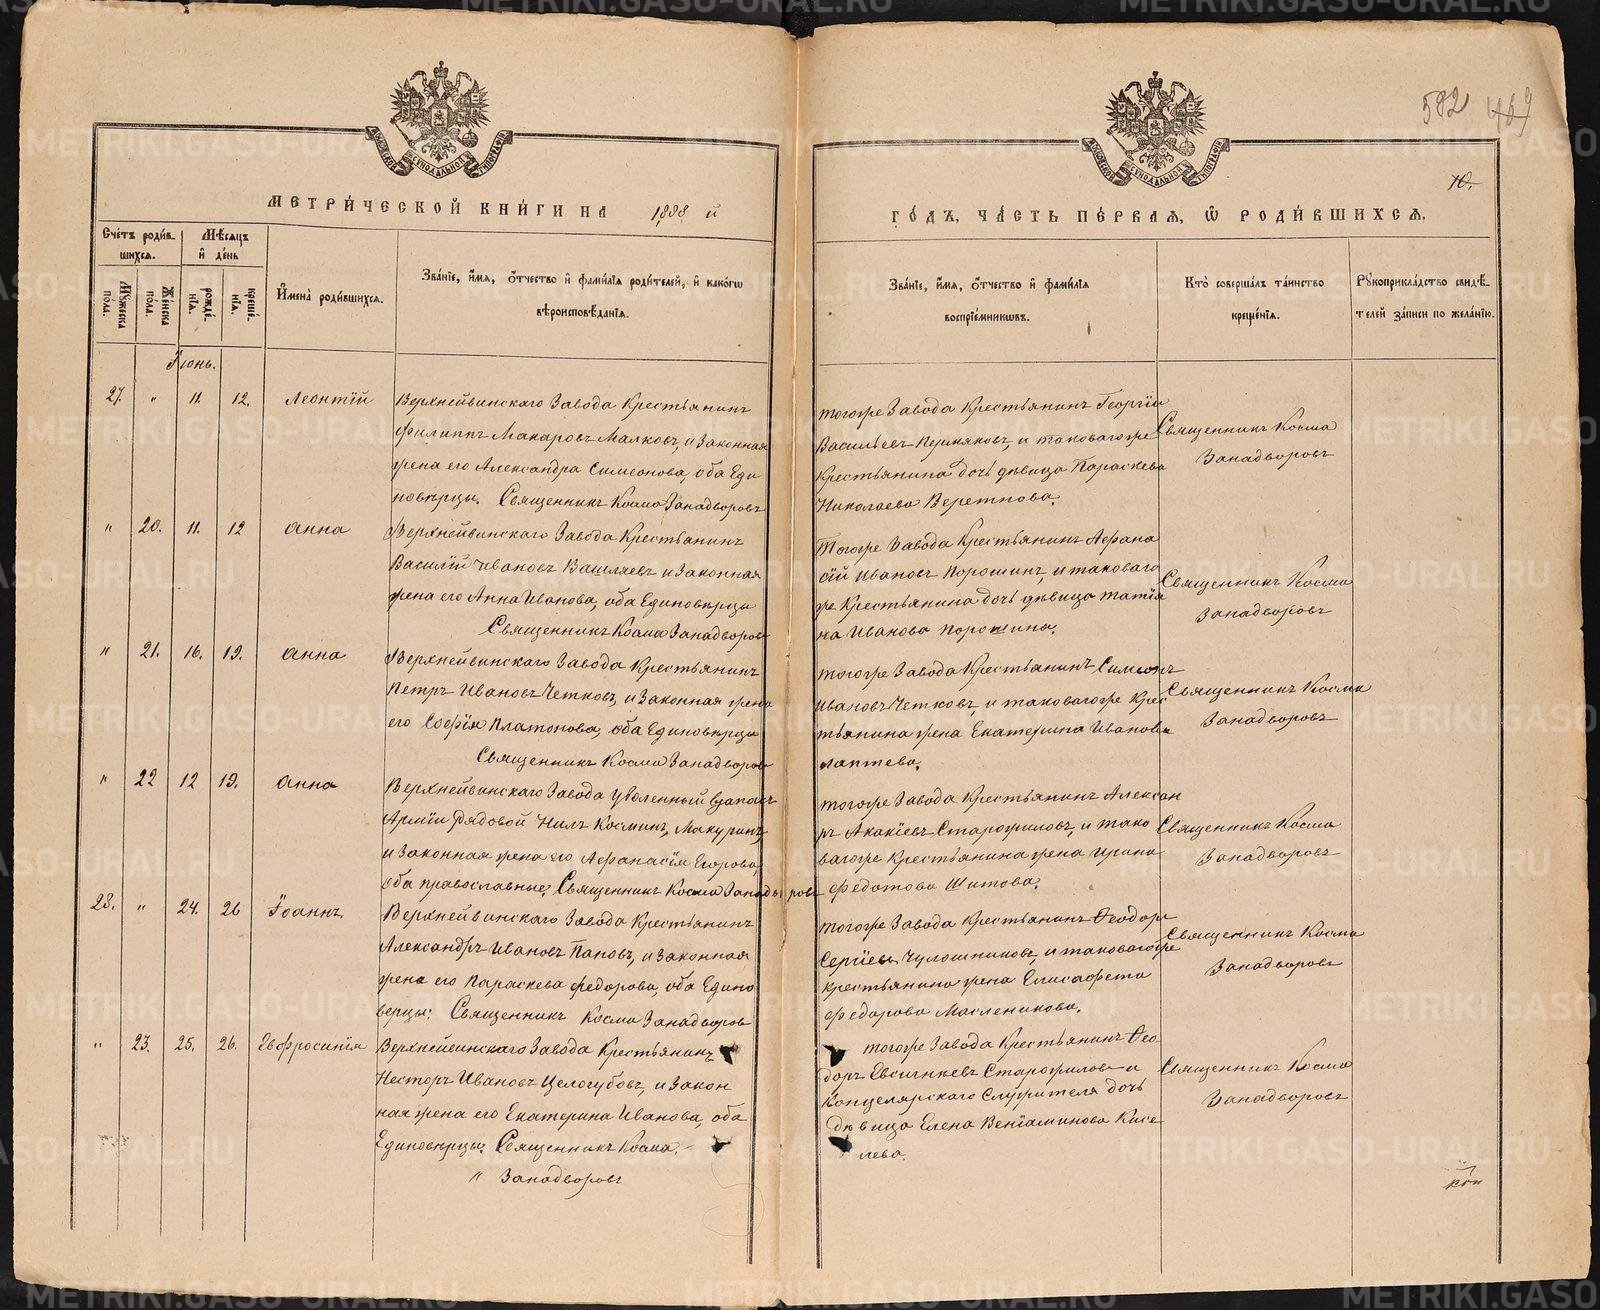 582 469
10.
МЕТРИ́ЧЕСКОЙ КНИ́ГИ НА 1888 й
Сче́тъ роди́в-
шихся.
Мѣ́сяцъ
и҆ де́нь
Мꙋ́жеска
пола.
Же́нска
пола.
рожде́-
нїѧ.
креще́-
нїѧ.
И҆мена̀ роди́вшихся.
Зва́нїе, и҆́мя, ѻ҆́тчество и҆ фами́лїя роди́телей, и҆ како́гѡ
вѣроисповѣ́данїя.
Іюнь.
27. " 11. 12. Леонтій
Верхнейвинскаго Завода Крестьянинъ
Филиппъ Макаровъ Малковъ, и Законная
жена его Александра Симеонова, оба Еди
новѣрцы. Священникъ Косма Занадворовъ
" 20. 11. 12 Анна
Верхнейвинскаго Завода Крестьянинъ
Василій Ивановъ Вашляевъ и Законная
жена его Анна Иванова, оба Единовѣрцы
Священникъ Косма Занадворовъ
" 21. 16. 19. Анна
Верхнейвинскаго Завода Крестьянинъ
Петръ Ивановъ Четковъ, и Законная жена
его Софія Платонова, оба Единовѣрцы
Священникъ Косма Занадворовъ
" 22 12 19. Анна
Верхнейвинскаго Завода уволенный в запасъ
Арміи Рядовой Нилъ Косминъ, Макуринъ,
и Законная жена его Афанасія Егорова,
оба православные. Священникъ Косма Занадворовъ
28. " 24. 26 Іоаннъ
Верхнейвинскаго Завода Крестьянинъ
Александръ Ивановъ Пановъ, и Законная
жена его Параскева Федорова, оба Едино
верцы: Священникъ Косма Занадворовъ
" 23. 25. 26. Евфросинія
Верхнейвинскаго Завода Крестьянинъ
Несторъ Ивановъ Целогубовъ, и Закон
ная жена его Екатерина Иванова, оба
Единовѣрцы. Священникъ Косма
" Занадворовъ
ГО́ДЪ, ЧА́СТЬ ПЕ́РВАЯ, Ѽ РОДИ́ВШИХСЯ.
Зва́нїе, и҆́мя, ѻ҆́тчество и҆ фами́лїя
воспрїе́мникѡвъ.
Кто̀ соверша́лъ та́инство
креще́нїя.
Рꙋкоприкла́дство свидѣ́-
телей за́писи по жела́нїю.
тогоже Завода Крестьянинъ Георгій
Васильевъ Пермяковъ, и таковагоже
Крестьянина дочь дѣвица Параскева
Николаева Веретнова.
Священникъ Косма
Занадворовъ
Тогоже Завода Крестьянинъ Афана
сій Ивановъ Порошинъ, и таковаго
же Крестьянина дочь дѣвица Татія
на Иванова Порошина.
Священникъ Косма
Занадворовъ
тогоже Завода Крестьянинъ Симеонъ
Ивановъ Четковъ, и таковагоже Крес
тьянина жена Екатерина Иванова
Лаптева.
Священникъ Косма
Занадворовъ
тогоже Завода Крестьянинъ Алексан
ръ Акакіевъ Старожиловъ, и тако
вагоже Крестьянина жена Ирина
Федотова Шитова.
Священникъ Косма
Занадворовъ
тогоже Завода Крестьянинъ Ѳеодоръ
Сергіевъ Чулошниковъ, и таковагоже
крестьянина жена Елисафета
Федорова Масленикова.
Священникъ Косма
Занадворовъ
тогоже Завода Крестьянинъ Ѳео
доръ Евсигніевъ Старожиловъ и
Концелярскаго Служителя дочь
дѣвица Елена Веніаминова Кисе
лева.
Священникъ Косма
Занадворовъ